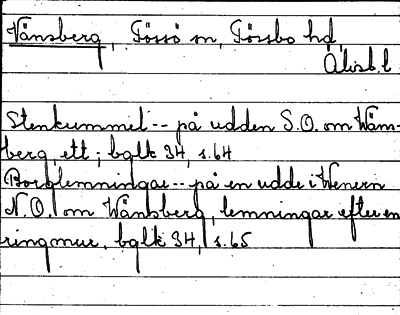 Vänsberg, Tössö sn, Tössbo hd,
Älvsb.l
Stenkummel-- på udden S.O. om Wäns-
berg, ett; bglk 34, s.64
Borglemningar-- på en udde i Wenern
N.O. om Wänsberg, lemningar efter en
ringmur, bglk 34, s.65